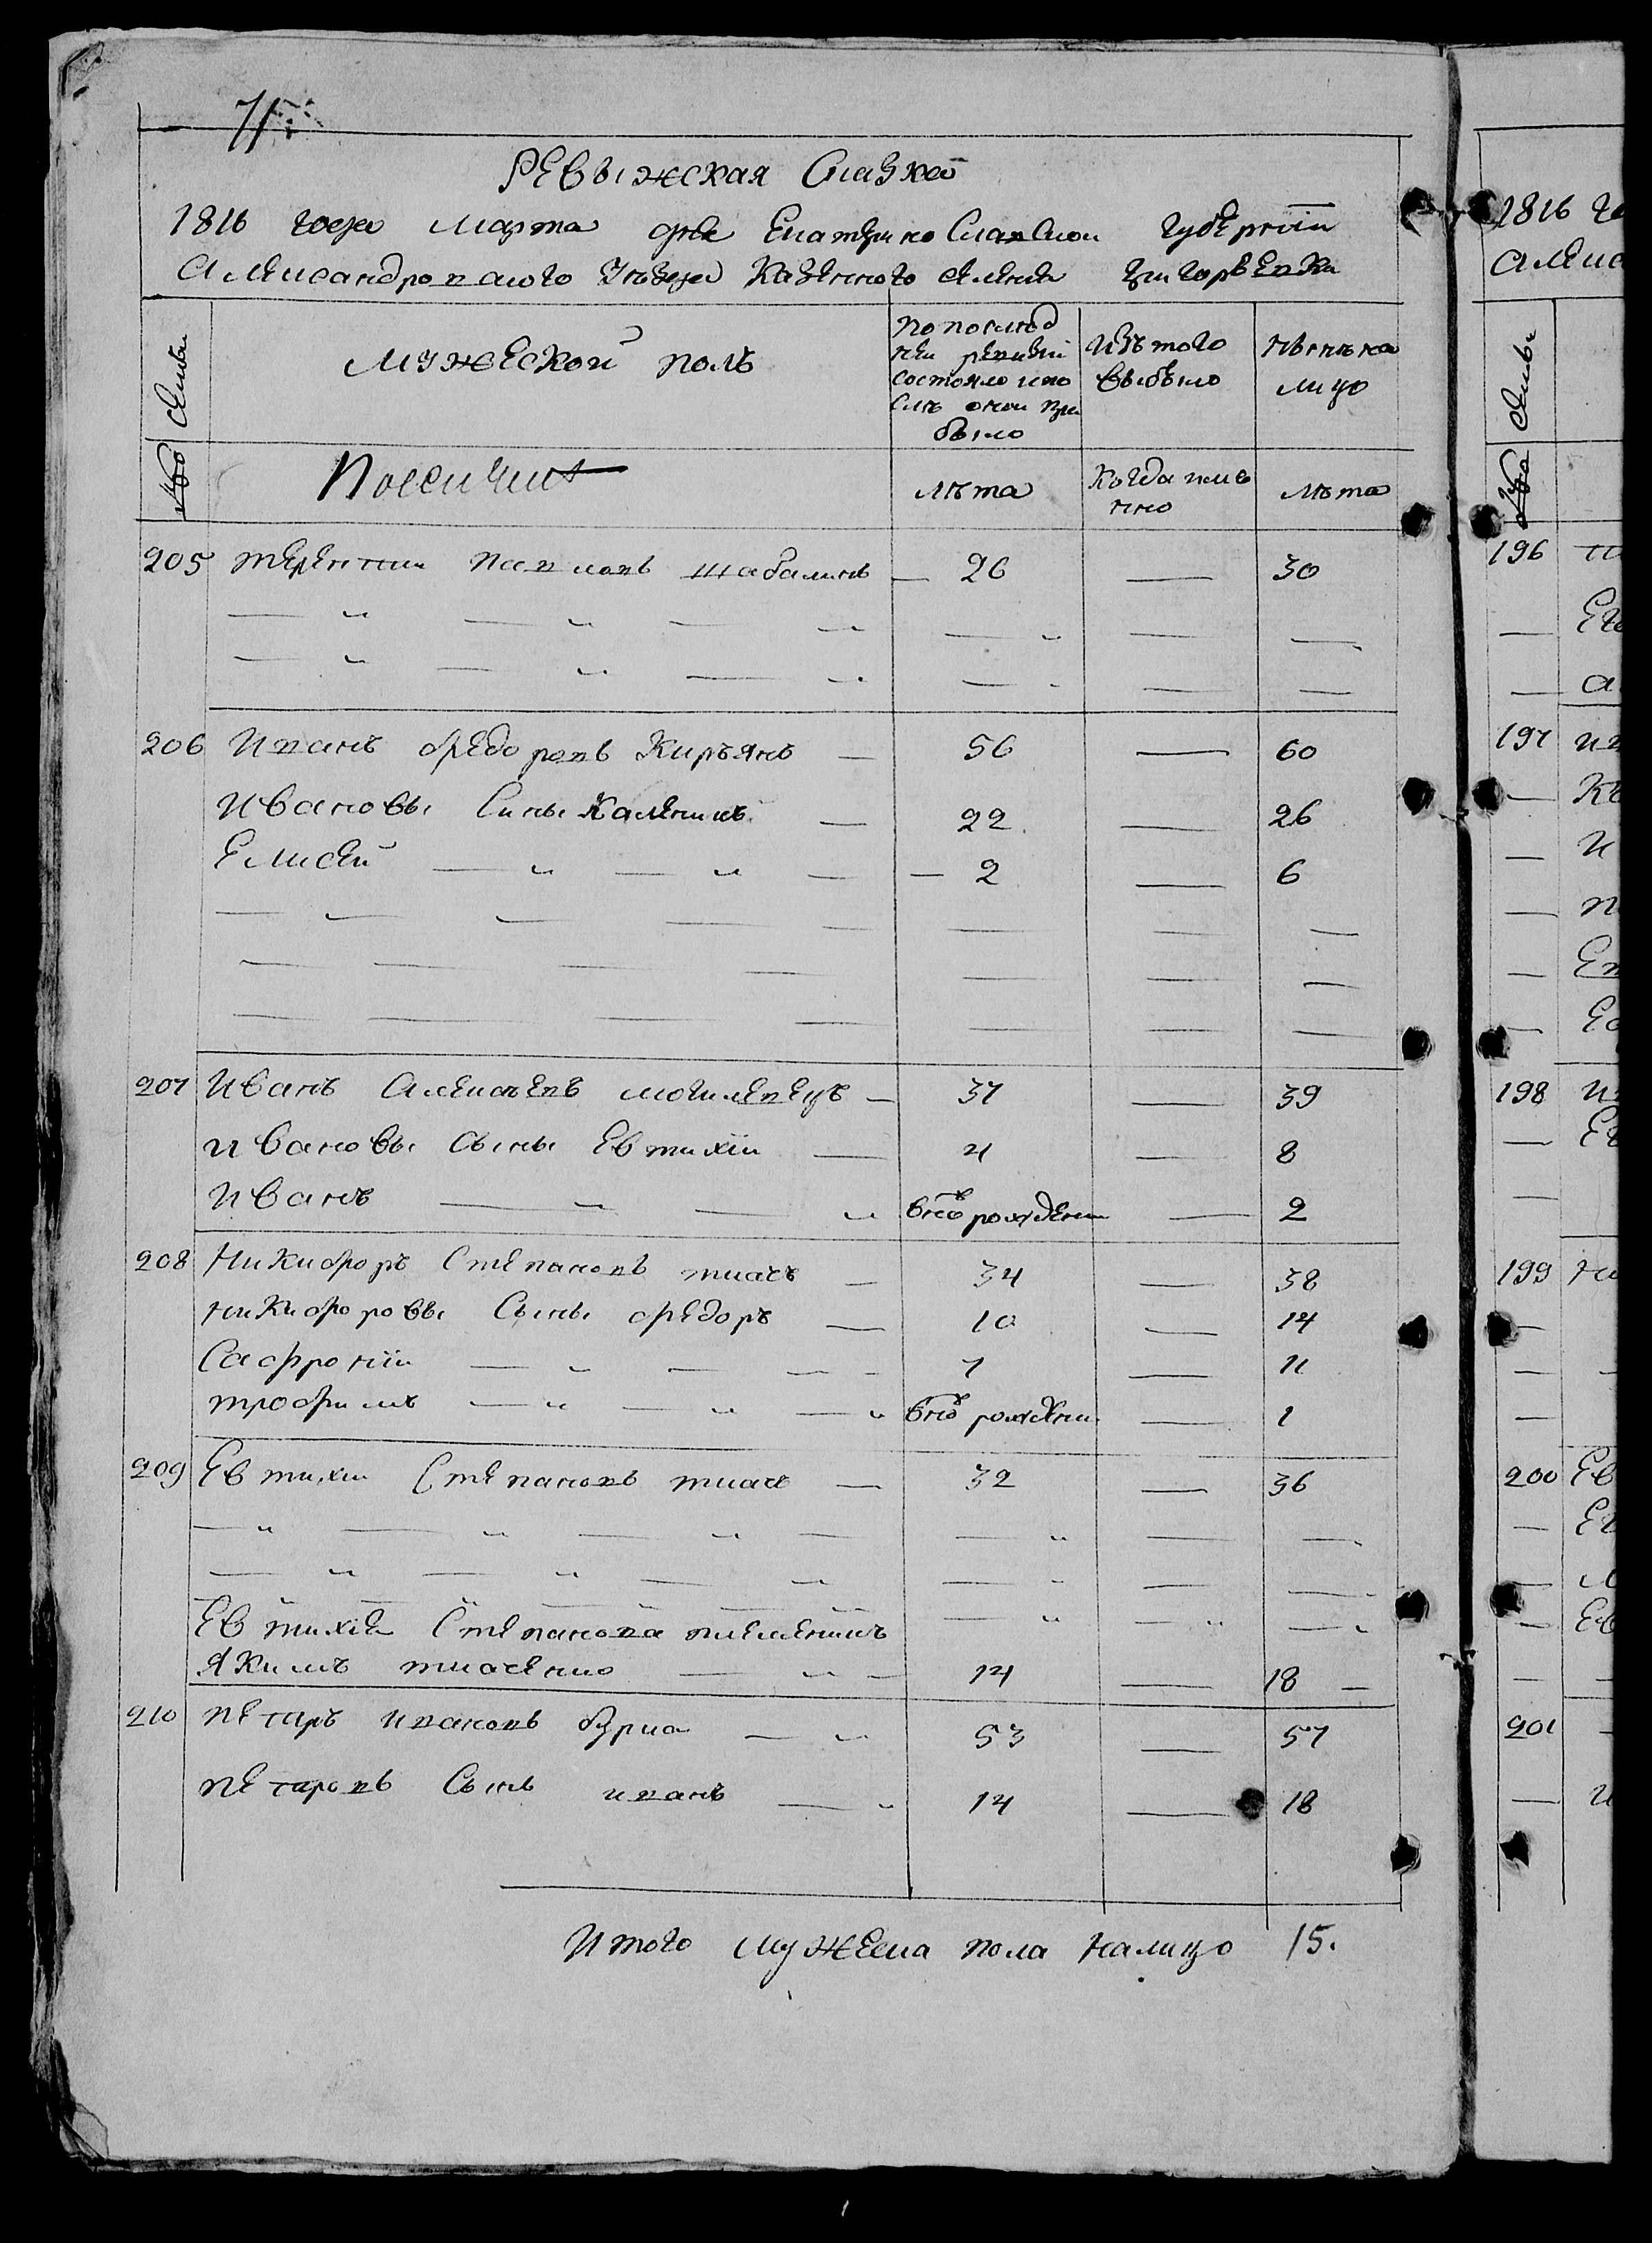 71
Ревыжская Сказка
1816 года Марта дня Екатерино Славской губернии
Александровского уезда Казенного селения Григорьевки
№ семьи
Мужеской полъ
По послед
ней ревизии
состояло и по
слъ оной при
было
Изъ того
выбыло
Нынъ на
лицо
лъта
Когда имя
нно
лъта
205 терентии павловъ шабалинъ — 26 — 30
206 Иванъ федоровъ Киръянъ — 56 — 60
Ивановы Сины Каленикъ — 22 — 26
Елисей — 2 — 6
207 Иванъ Алексъевъ могилевецъ — 37 — 39
ивановы сыны Евтихiи — 4 — 8
Иванъ — вновъ рожденны — 2
208 Никифоръ Степановъ ткачъ — 34 — 38
никифоровы Сыны федоръ — 10 — 14
Сафронiи — 7 — 11
трофимъ — вновъ рожденны — 1
209 Евтихии Степановъ ткачъ — 32 — 36
Евтихiя Степанова племеникъ
Якимъ ткаченко — 14 — 18 —
210 петаръ ивановъ бурка — 53 — 57
петаровъ Сынъ иванъ — 14 — 18
Итого мужеска пола налицо 15.
1816 го
Алекс
семьи
№
196
Его
а
197 ив
И
п
Ев
198
Ев
199 Ни
200 Ев
Ев
201
и